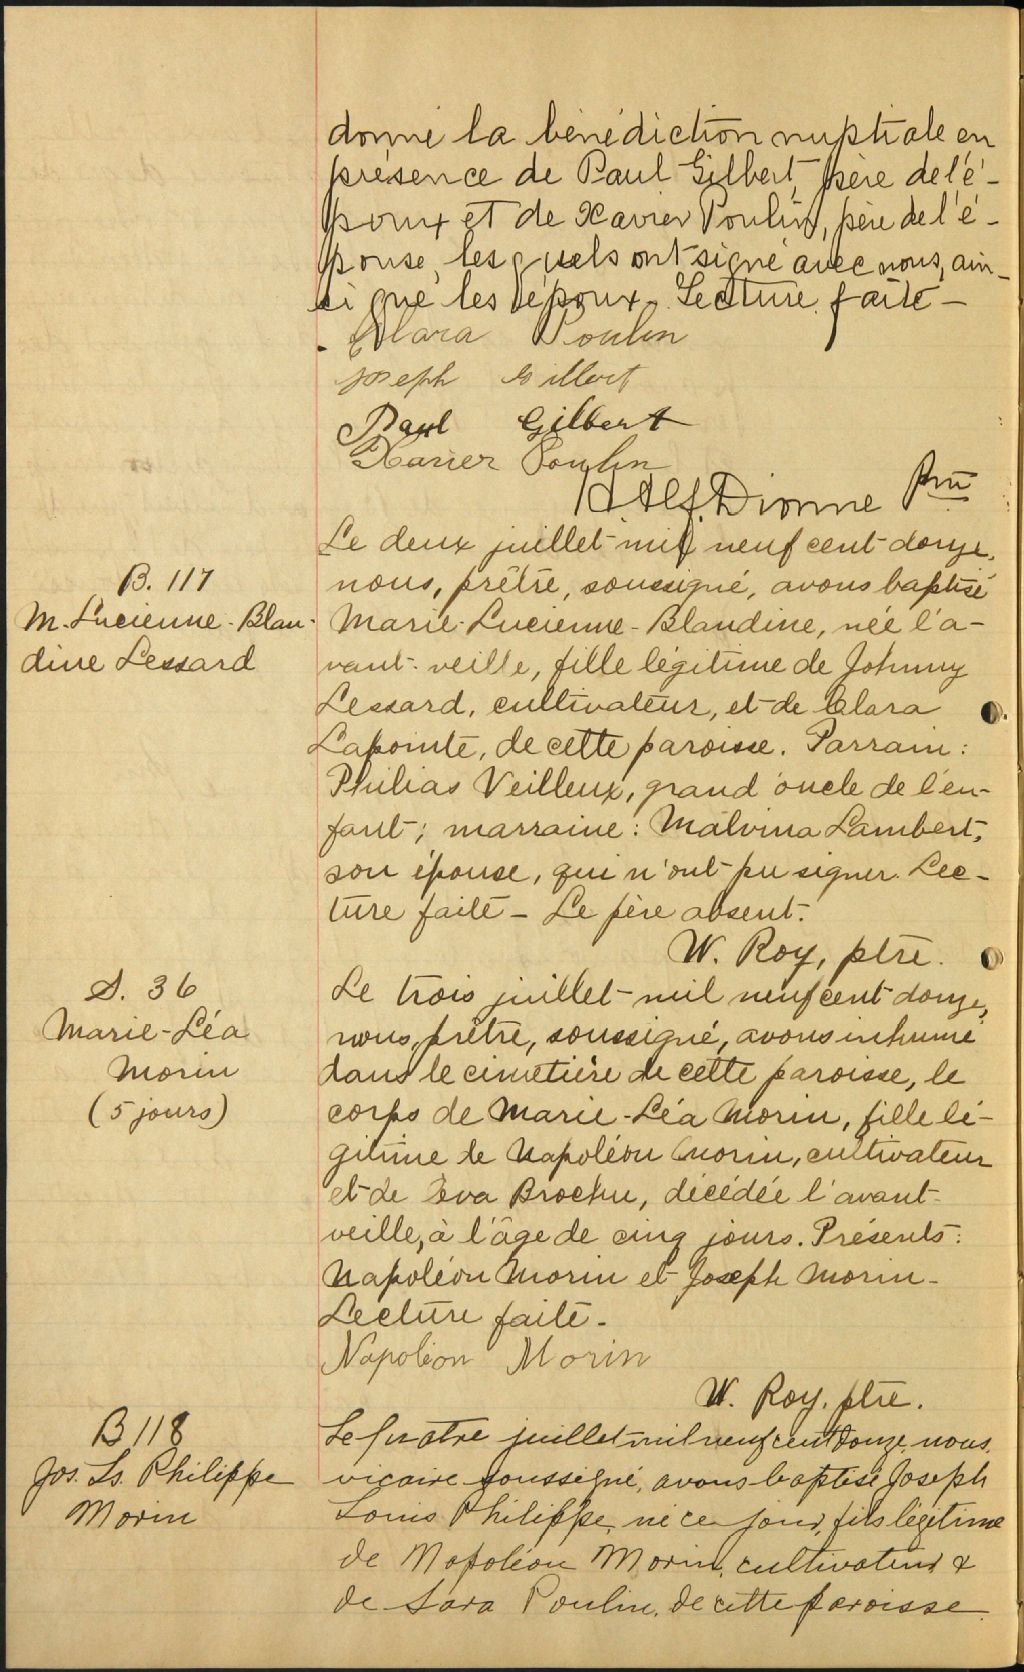 donné la bénédiction nuptiale en
présence de Paul Gilbert, père de l'é-
poux et de Xavier Poulin, père de l'é-
pouse, lesquels ont signé avec nous, ain-
si que les époux. Lecture faite -
Clara Poulin
Joseph Gilbert
Paul Gilbert
Xavier Poulin
Alf. Dionne Ptre
B. 117
M. Lucienne-Blan-
dine Lessard
Le deux juillet mil neuf cent douze,
nous, prêtre, soussigné, avons baptisé
Marie-Lucienne-Blandine, née l'a-
vant-veille, fille légitime de Johnny
Lessard, cultivateur, et de Clara
Lapointe, de cette paroisse. Parrain:
Philias Veilleux, grand'oncle de l'en-
fant; marraine: Malvina Lambert,
son épouse, qui n'ont pu signer. Lec-
ture faite - Le père absent.
W. Roy, ptre.
S. 36
Marie-Léa
Morin
(5 jours)
Le trois juillet mil neuf cent douze,
nous, prêtre, soussigné, avons inhumé
dans le cimetière de cette paroisse, le
corps de Marie-Léa Morin, fille lé-
gitime de Napoléon Morin, cultivateur
et de Eva Brochu, décédée l'avant-
veille, à l'âge de cinq jours. Présents:
Napoléon Morin et Joseph Morin -
Lecture faite -
Napoléon Morin
W. Roy, ptre.
B 118
Jos. Ls. Philippe
Morin
Le quatre juillet mil neuf cent douze, nous,
vicaire soussigné, avons baptisé Joseph
Louis Philippe, né ce jour, fils légitime
de Napoléon Morin, cultivateur &
de Sara Poulin, de cette paroisse.